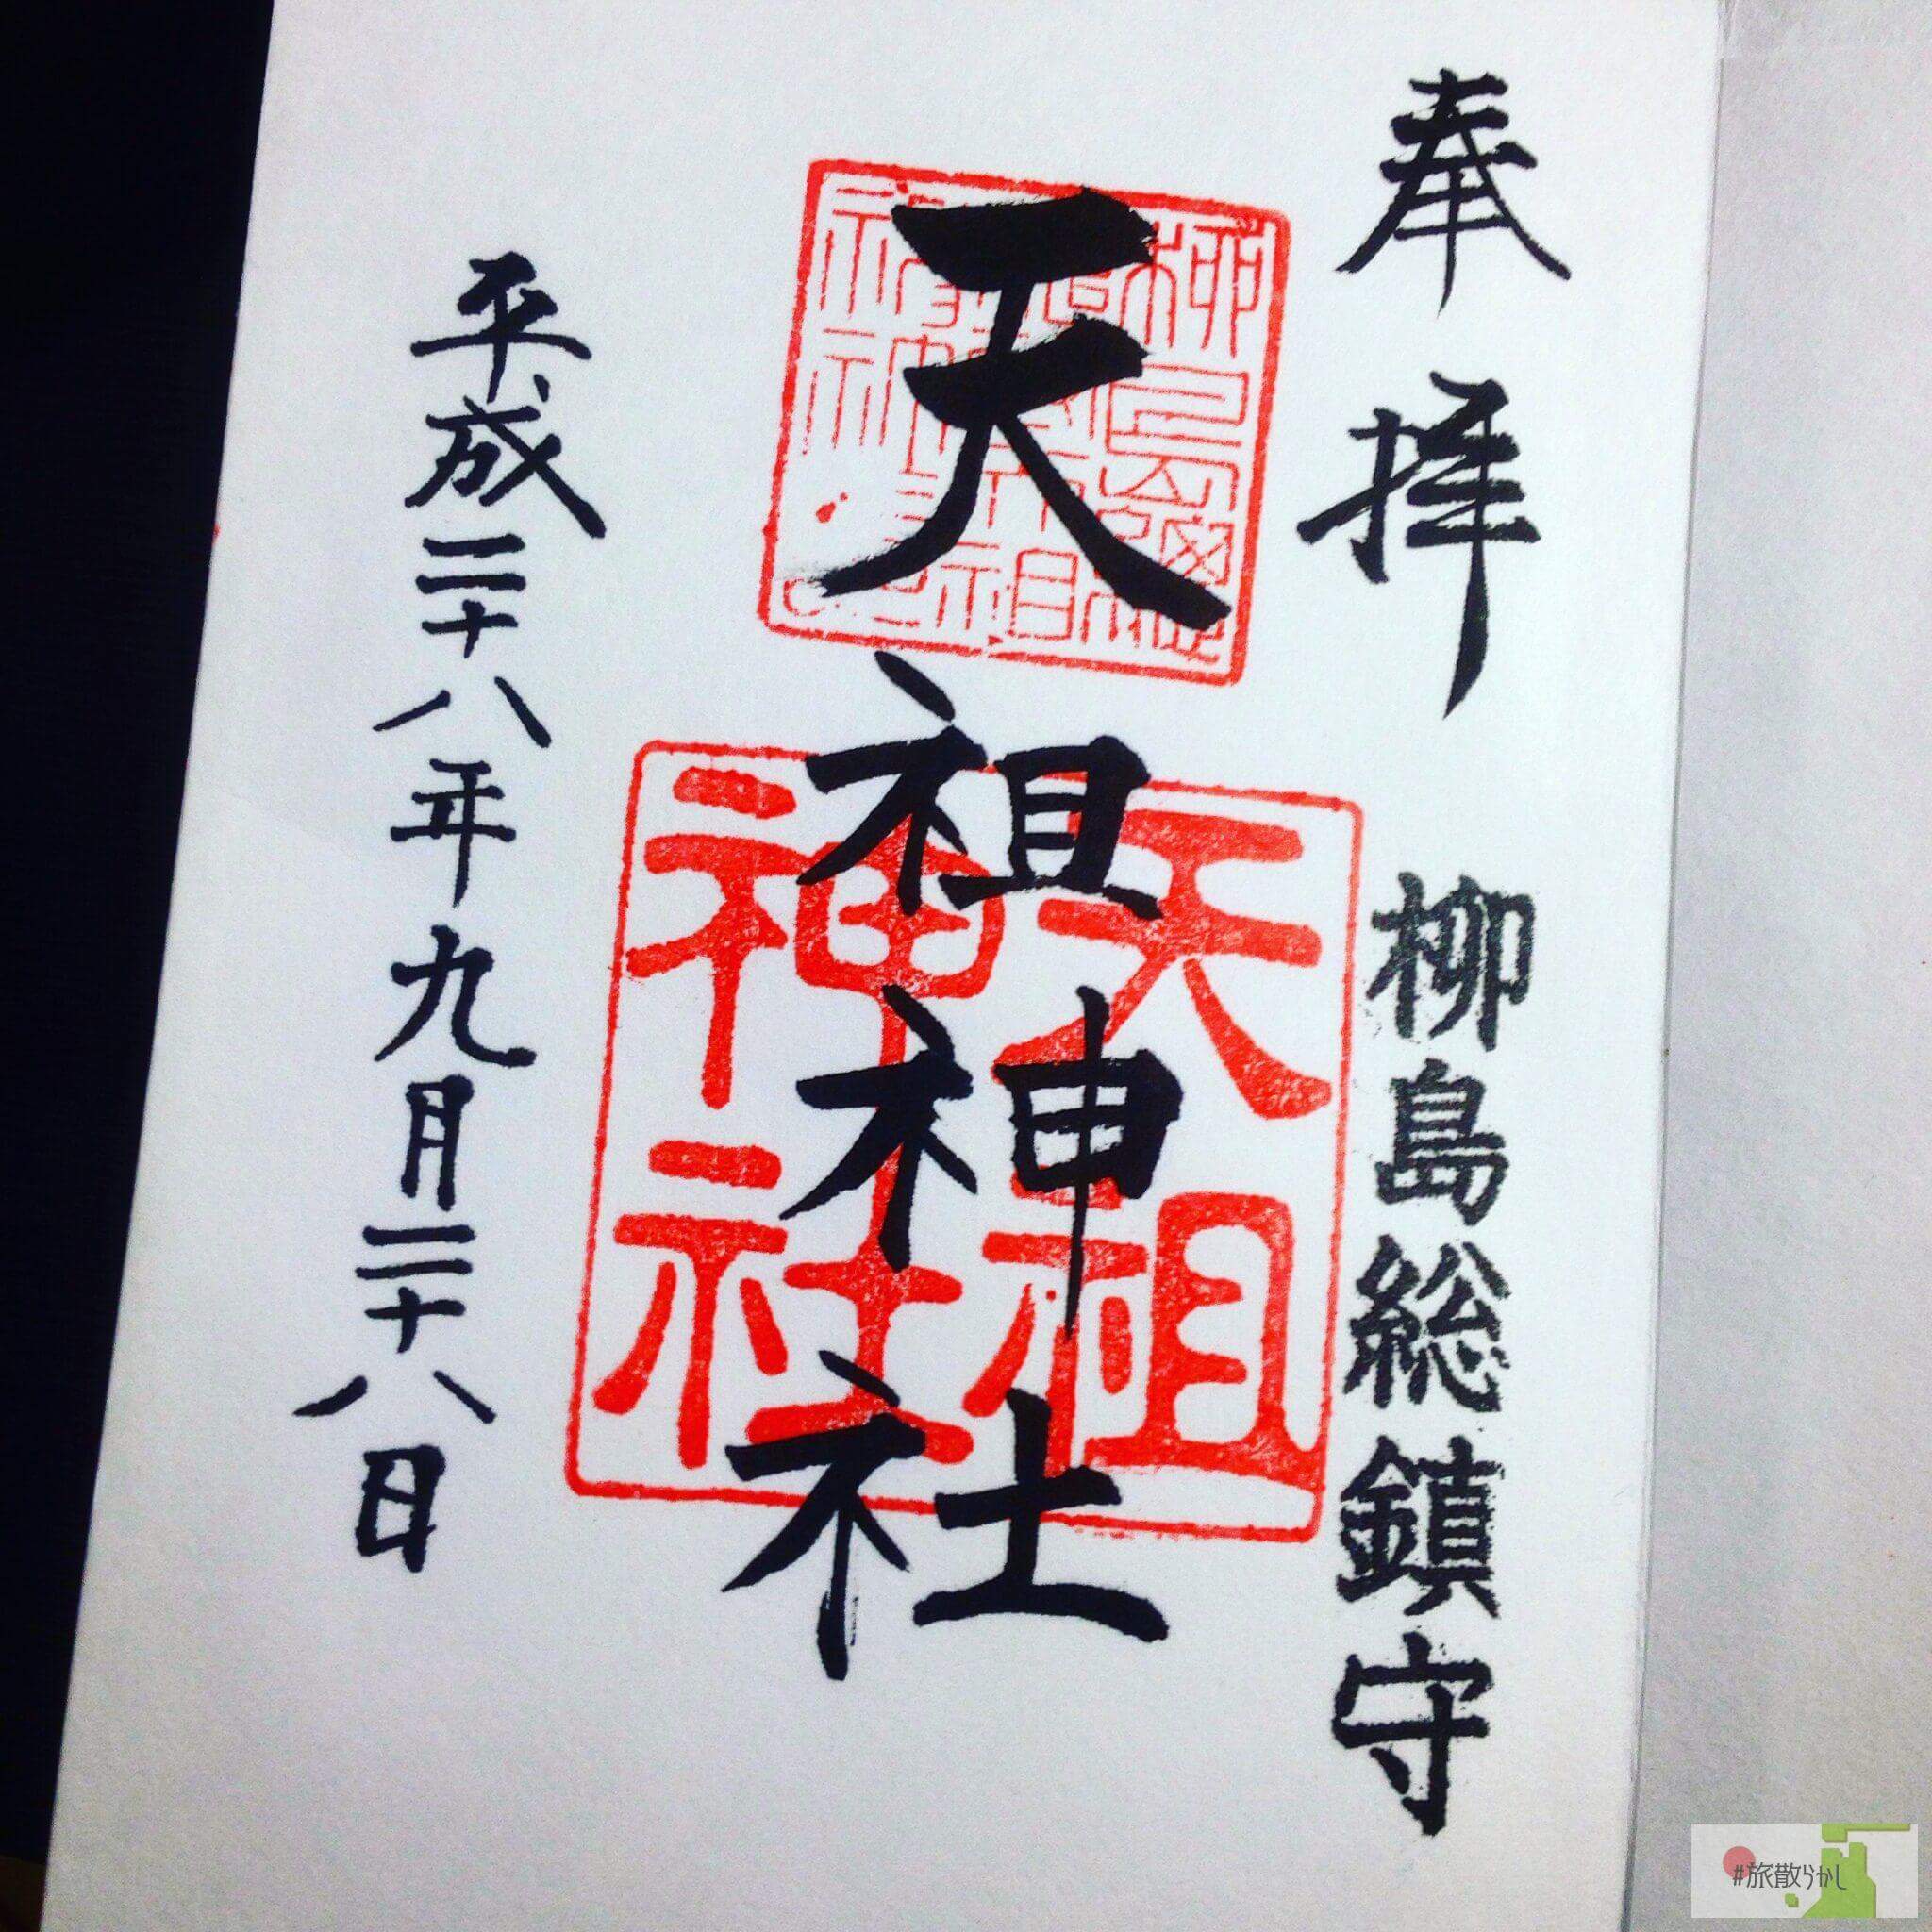 奉拝
柳島総鎮守
天祖神社
天祖
神社
平成二十八年九月二十八日
#旅散らかし